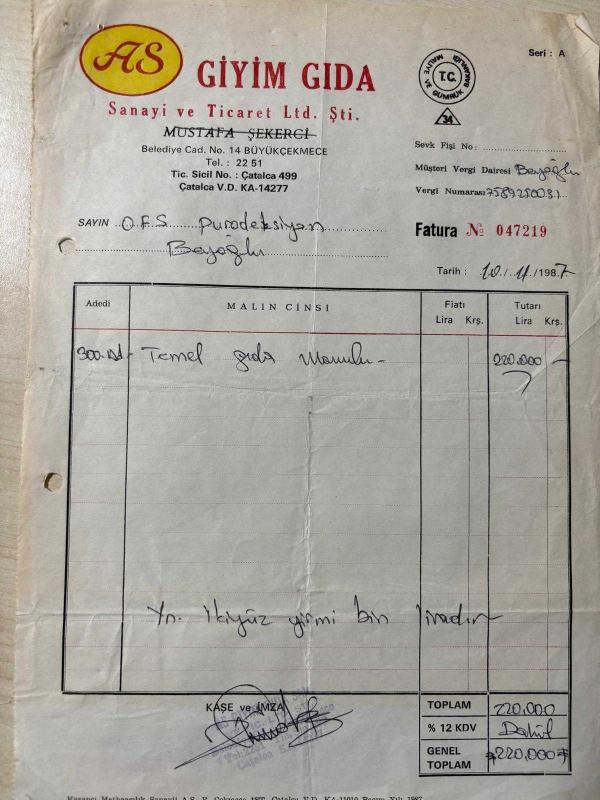 AS
GİYİM GIDA
Sanayi ve Ticaret Ltd. Şti.
MUSTAFA ŞEKERCİ
Belediye Cad. No. 14 BÜYÜKÇEKMECE
Tel. : 22 51
Tic. Sicil No. : Çatalca 499
Çatalca V.D. KA-14277
Seri : A
MALİYE VE GÜMRÜK BAKANLIĞI
T.C.
34
Sevk Fişi No :
Müşteri Vergi Dairesi Beyoğlu
Vergi Numarası 7589250031
SAYIN O.F.S. Purodeksiyon
Beyoğlu
Fatura № 047219
Tarih : 10 / 11 / 1987
Adedi MALIN CİNSİ Fiatı Tutarı
Lira Krş. Lira Krş.
300. Ad Temel gıda Mamulu - 220.000 -
Yn. İkiyüz yirmi bin liradır
KAŞE ve İMZA
TOPLAM 220.000
% 12 KDV Dahil
GENEL TOPLAM 220.000